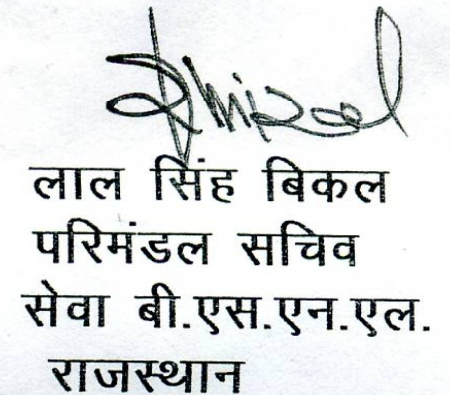 लाल सिंह बिकल
परिमंडल सचिव
सेवा बी.एस.एन.एल.
राजस्थान